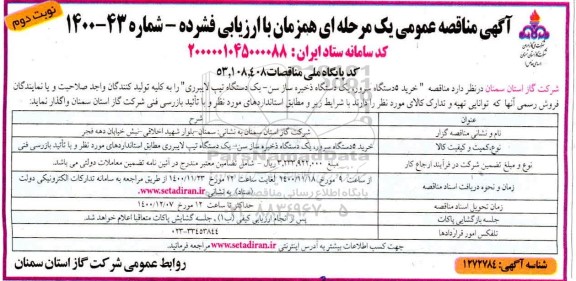 نوبت دوم
آگهی مناقصه عمومی یک مرحله ای همزمان با ارزیابی فشرده - شماره ۴۳-۱۴۰۰
کد سامانه ستاد ایران: ۲۰۰۰۰۰۱۰۴۵۰۰۰۰۸۸
کد پایگاه ملی مناقصات ۵۳,۱۰۸,۴۰۸
شرکت گاز استان سمنان درنظر دارد مناقصه " خرید ۵دستگاه سرور، یک دستگاه ذخیره ساز سن- یک دستگاه تیپ لایبرری" را به کلیه تولید کنندگان واجد صلاحیت و یا نمایندگان
فروش رسمی آنها که توانایی تهیه و تدارک کالای مورد نظر را دارند با شرایط زیر و مطابق استانداردهای مورد نظر و با تأئید بازرسی فنی شرکت گاز استان سمنان واگذار نماید:
عنوان شرح
نام و نشانی مناقصه گزار شرکت گاز استان سمنان به نشانی: سمنان-بلوار شهید اخلاقی-نبش خیابان دهه فجر
نوع،کمیت و کیفیت کالا خرید ۵دستگاه سرور، یک دستگاه ذخیره ساز سن- یک دستگاه تیپ لایبرری مطابق استانداردهای مورد نظر و با تأئید بازرسی فنی
نوع و مبلغ تضمین شرکت در فرآیند ارجاع کار مبلغ ۳,۲۳۳,۹۲۲,۰۰۰ ریال، شامل تضامین معتبر مندرج در آئین نامه تضمین معاملات دولتی می باشد.
زمان و نحوه دریافت اسناد مناقصه از ساعت ۹۰ مورخ ۱۴۰۰/۱۱/۱۸ لغایت ساعت ۲۲ مورخ ۱۴۰۰/۱۱/۲۳ از طریق مراجعه به سامانه تدارکات الکترونیکی دولت (ستاد) به نشانی: www.setadiran.ir
زمان تحویل اسناد مناقصه حداکثر تا ساعت ۱۲ مورخ ۱۴۰۰/۱۲/۰۷
جلسه بازگشایی پاکات پس از انجام ارزیابی کیفی (ب۱)، جلسه گشایش پاکات متعاقبا اعلام خواهد شد.
تلفکس امور قراردادها ۰۲۳-۳۳۴۵۳۸۴۴
جهت کسب اطلاعات بیشتر به آدرس اینترنتی www.setadiran.ir مراجعه فرمائید.
شناسه آگهی: ۱۲۷۲۷۸۴
روابط عمومی شرکت گاز استان سمنان